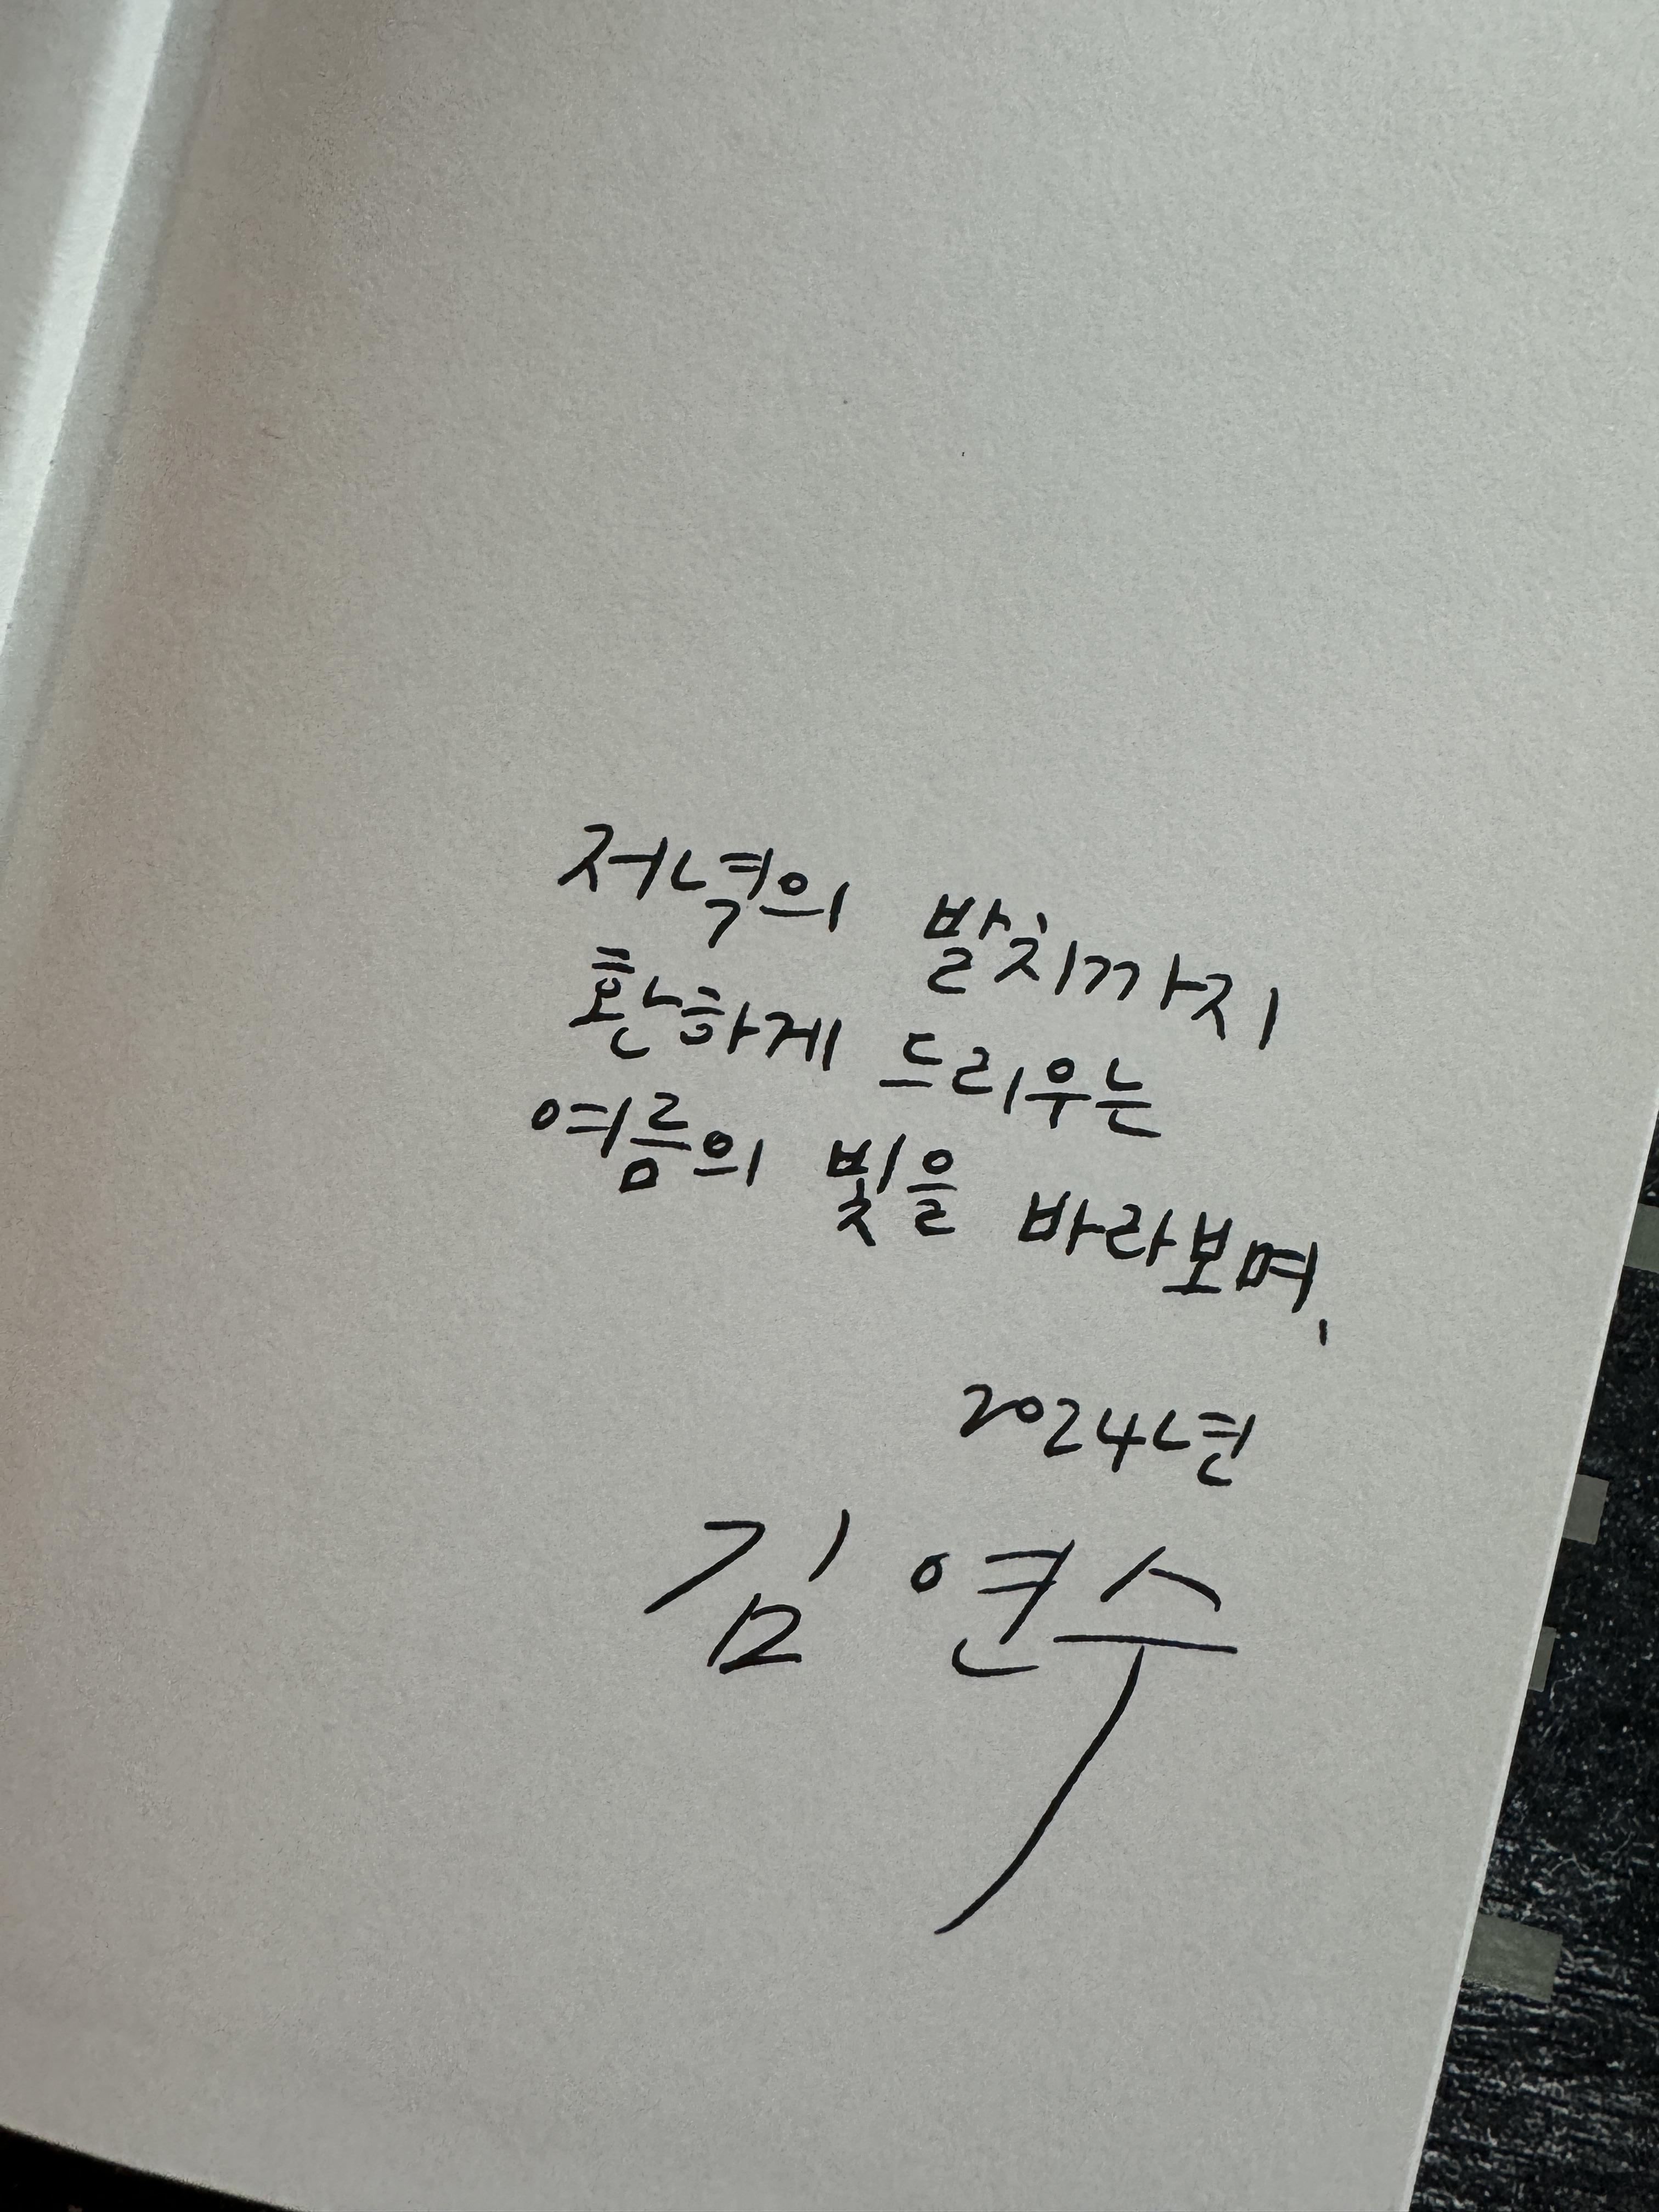 저녁의 발치까지
환하게 드리우는
여름의 빛을 바라보며,
2024년
김연수